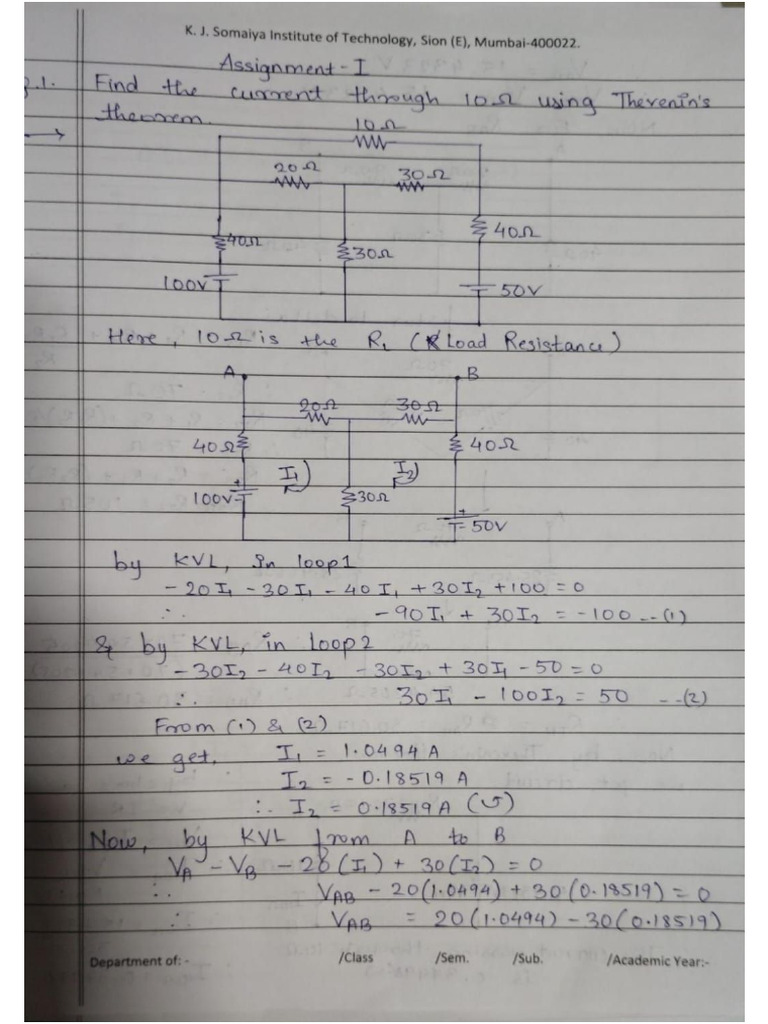 K. J. Somaiya Institute of Technology, Sion (E), Mumbai-400022.
Assignment - I
Q.1. Find the current through 10Ω using Thevenin's
theorem.
→
10Ω
20Ω 30Ω
40Ω 30Ω 40Ω
100V 50V
Here, 10Ω is the RL (Load Resistance)
A B
20Ω 30Ω
40Ω 40Ω
I1 I2
+ 100V 30Ω
+ 50V
by KVL, in loop1
-20I1 - 30I1 - 40I1 + 30I2 + 100 = 0
∴ -90I1 + 30I2 = -100 --(1)
& by KVL, in loop2
-30I2 - 40I2 - 30I2 + 30I1 - 50 = 0
∴ 30I1 - 100I2 = 50 --(2)
From (1) & (2)
we get, I1 = 1.0494 A
I2 = -0.18519 A
∴ I2 = 0.18519A (↺)
Now, by KVL from A to B
VA - VB - 20(I1) + 30(I2) = 0
∴ VAB - 20(1.0494) + 30(0.18519) = 0
∴ VAB = 20(1.0494) - 30(0.18519)
Department of: - /Class /Sem. /Sub. /Academic Year:-